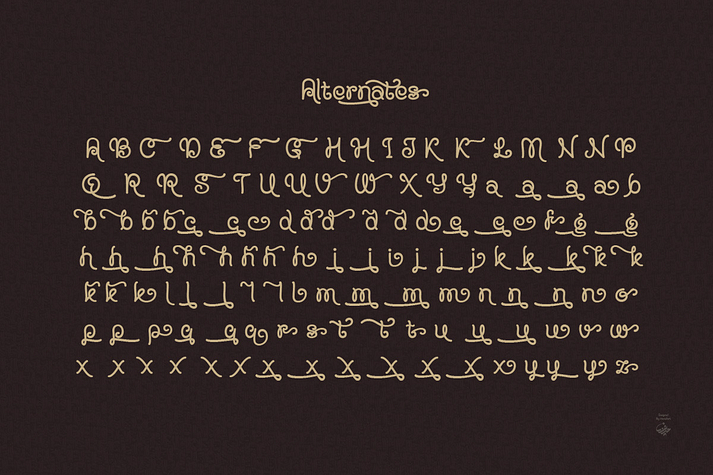 Alternates
A B C D E F G H H I J K K L M N N P
Q R R S T U U V W X Y Y a a a a b
b b b b c c c d d d d d d e e e f g g
h h h h h h h h i i i j j j k k k k k
k k k l l l l l l m m m m n n n n o
p p p q q q r s t t t u u u v w w
x x x x x x x x x x x x x y y y z